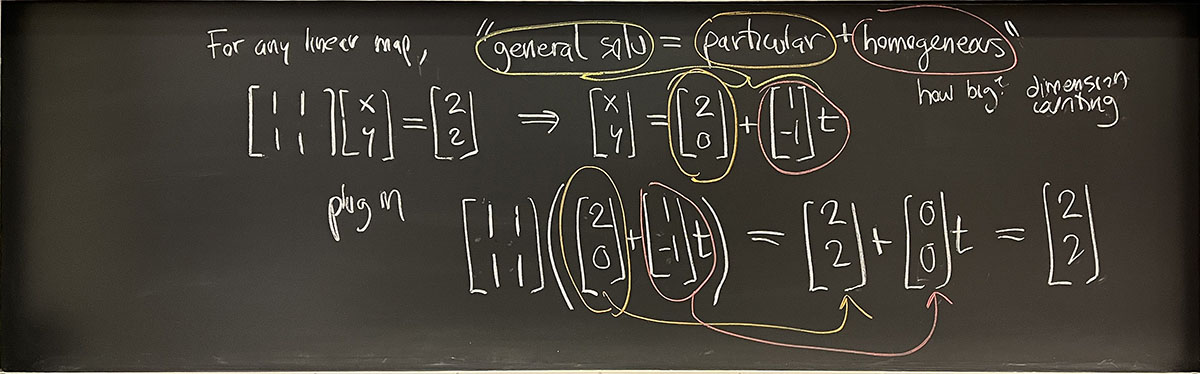 For any linear map, "general soln = particular + homogeneous"
how big? dimension counting
[1 1; 1 1] [x; y] = [2; 2] ⇒ [x; y] = [2; 0] + [1; -1] t
plug in [1 1; 1 1] ([2; 0] + [1; -1] t) = [2; 2] + [0; 0] t = [2; 2]